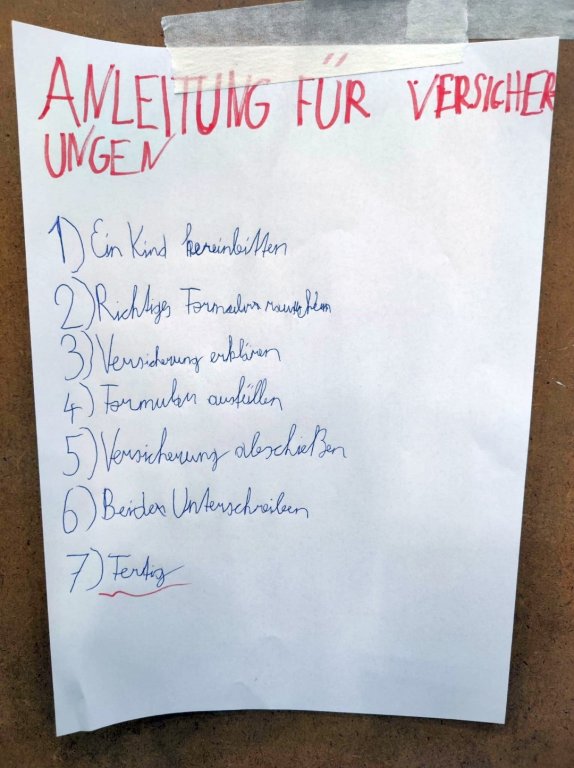 ANLEITUNG FÜR VERSICHER
UNGEN
1) Ein Kind hereinbitten
2) Richtiges Formular
3) Versicherung erklären
4) Formular ausfüllen
5) Versicherung abschießen
6) Beides Unterschreiben
7) Fertig